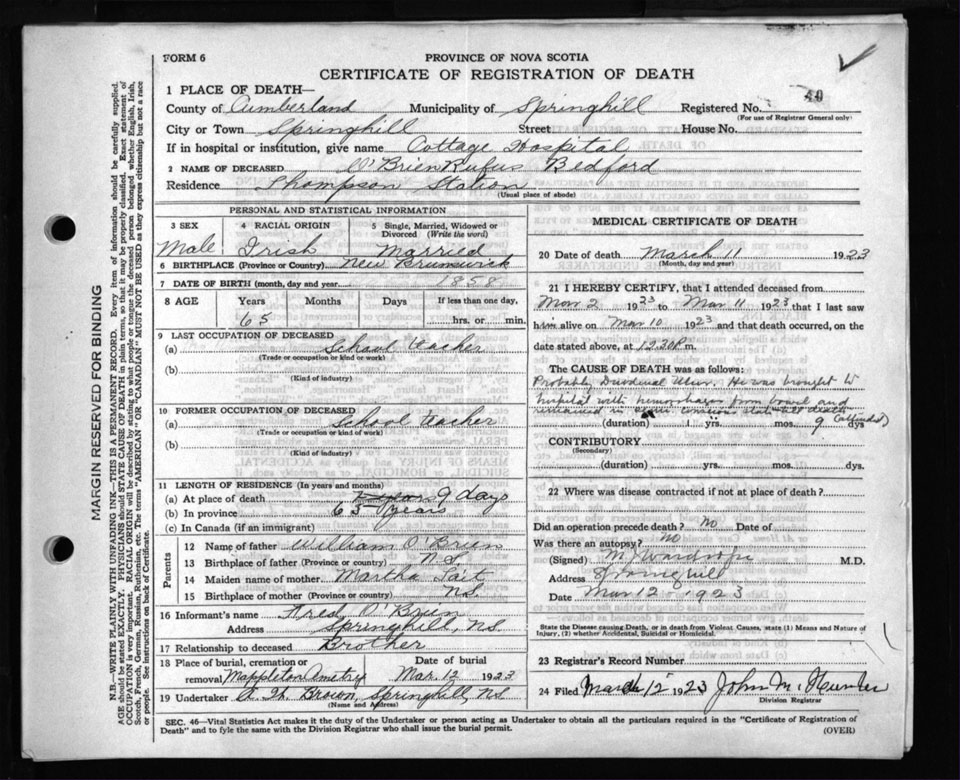 FORM 6
PROVINCE OF NOVA SCOTIA
CERTIFICATE OF REGISTRATION OF DEATH
1 PLACE OF DEATH—
County of Cumberland Municipality of Springhill Registered No. 40
(For use of Registrar General only)
City or Town Springhill Street House No.
If in hospital or institution, give name Cottage Hospital
2 NAME OF DECEASED O'Brien Rufus Bedford
Residence Thompson Station
(Usual place of abode)
PERSONAL AND STATISTICAL INFORMATION
3 SEX 4 RACIAL ORIGIN 5 Single, Married, Widowed or Divorced (Write the word)
Male Irish Married
6 BIRTHPLACE (Province or Country) New Brunswick
7 DATE OF BIRTH (month, day and year) 1858
8 AGE Years Months Days If less than one day,
65 hrs. or min.
9 LAST OCCUPATION OF DECEASED
(a) School Teacher
(Trade or occupation or kind of work)
(b)
(Kind of industry)
10 FORMER OCCUPATION OF DECEASED
(a) School Teacher
(Trade or occupation or kind of work)
(b)
(Kind of industry)
11 LENGTH OF RESIDENCE (In years and months)
(a) At place of death 9 days
(b) In province 65 years
(c) In Canada (if an immigrant)
Parents
12 Name of father William O'Brien
13 Birthplace of father (Province or country) N.S.
14 Maiden name of mother Martha Tait
15 Birthplace of mother (Province or country) N.S.
16 Informant's name Fred O'Brien
Address Springhill, N.S.
17 Relationship to deceased Brother
18 Place of burial, cremation or removal Mappleton Date of burial Mar. 12 1923
19 Undertaker Brown, Springhill, N.S.
(Name and Address)
MEDICAL CERTIFICATE OF DEATH
20 Date of death March 11 1923
(Month, day and year)
21 I HEREBY CERTIFY, that I attended deceased from
Mar 2 1923 to Mar 11 1923 that I last saw
him alive on Mar 10 1923 and that death occurred, on the
date stated above, at 12.30 P.m.
The CAUSE OF DEATH was as follows:
Probably Duodenal Ulcer. He was brought to
hospital with hemorrhages from bowel and
remained in death
(duration) yrs. mos. 9 dys
CONTRIBUTORY
(Secondary)
(duration) yrs. mos. dys.
22 Where was disease contracted if not at place of death?
Did an operation precede death? no Date of
Was there an autopsy? no
(Signed) M.D.
Address Springhill
Date Mar 12 1923
State the Disease causing Death, or in death from Violent Causes, state (1) Means and Nature of
Injury, (2) whether Accidental, Suicidal or Homicidal.
23 Registrar's Record Number
24 Filed March 12 1923 John M. Hunter
Division Registrar
SEC. 46—Vital Statistics Act makes it the duty of the Undertaker or person acting as Undertaker to obtain all the particulars required in the "Certificate of Registration of
Death" and to fyle the same with the Division Registrar who shall issue the burial permit.
(OVER)
MARGIN RESERVED FOR BINDING
N.B.—WRITE PLAINLY WITH UNFADING INK—THIS IS A PERMANENT RECORD. Every item of information should be carefully supplied.
AGE should be stated EXACTLY. PHYSICIANS should STATE CAUSE OF DEATH in plain terms, so that it may be properly classified. Exact statement of
OCCUPATION is very important. RACIAL ORIGIN will be described by stating to what people or tongue the deceased person belonged whether English, Irish,
Scotch, French, German, Russian, Ruthenian, etc. The terms "AMERICAN" OR "CANADIAN" MUST NOT BE USED as they express citizenship but not a race
or people. See instructions on back of Certificate.